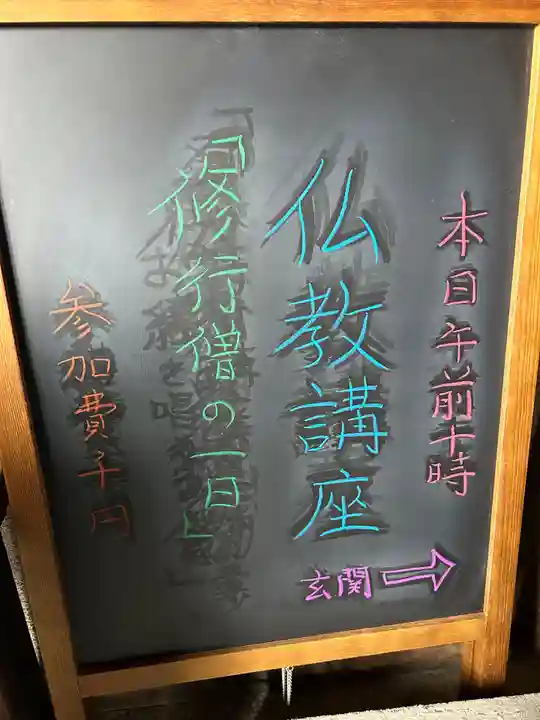 本日午前十時
仏教講座
「修行僧の一日」
参加費千円
玄関